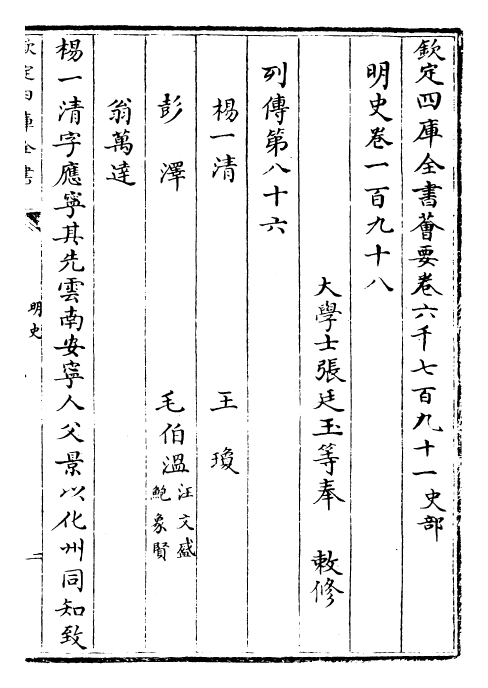 欽定四庫全書薈要卷六千七百九十一 史部
明史卷一百九十八
大學士張廷玉等奉 敕修
列傳第八十六
楊一清 王瓊
彭澤 毛伯溫 汪文盛 鮑象賢
翁萬達
楊一清字應寧其先雲南安寧人父景以化州同知致
欽定四庫全書
明史